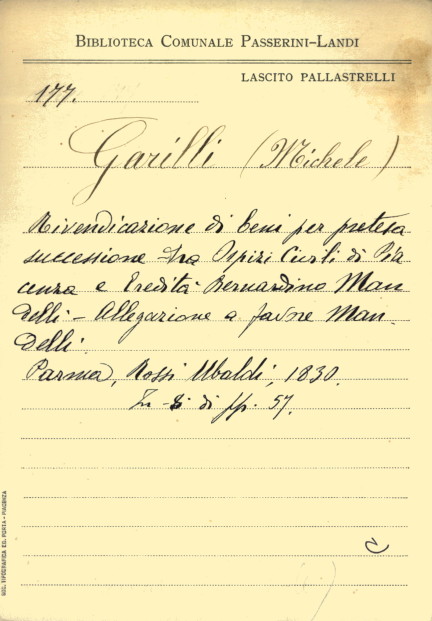 BIBLIOTECA COMUNALE PASSERINI-LANDI
LASCITO PALLASTRELLI
177.
Garilli (Michele)
Rivendicazione di beni per pretesa
successione tra Ospizi Civili di Pia
cenza e Eredità Bernardino Man
delli - Allegazione a favore Man-
delli.
Parma, Rossi Ubaldi, 1830.
In di pp. 57.
C
SOC. TIPOGRAFICA ED. PORTA - PIACENZA